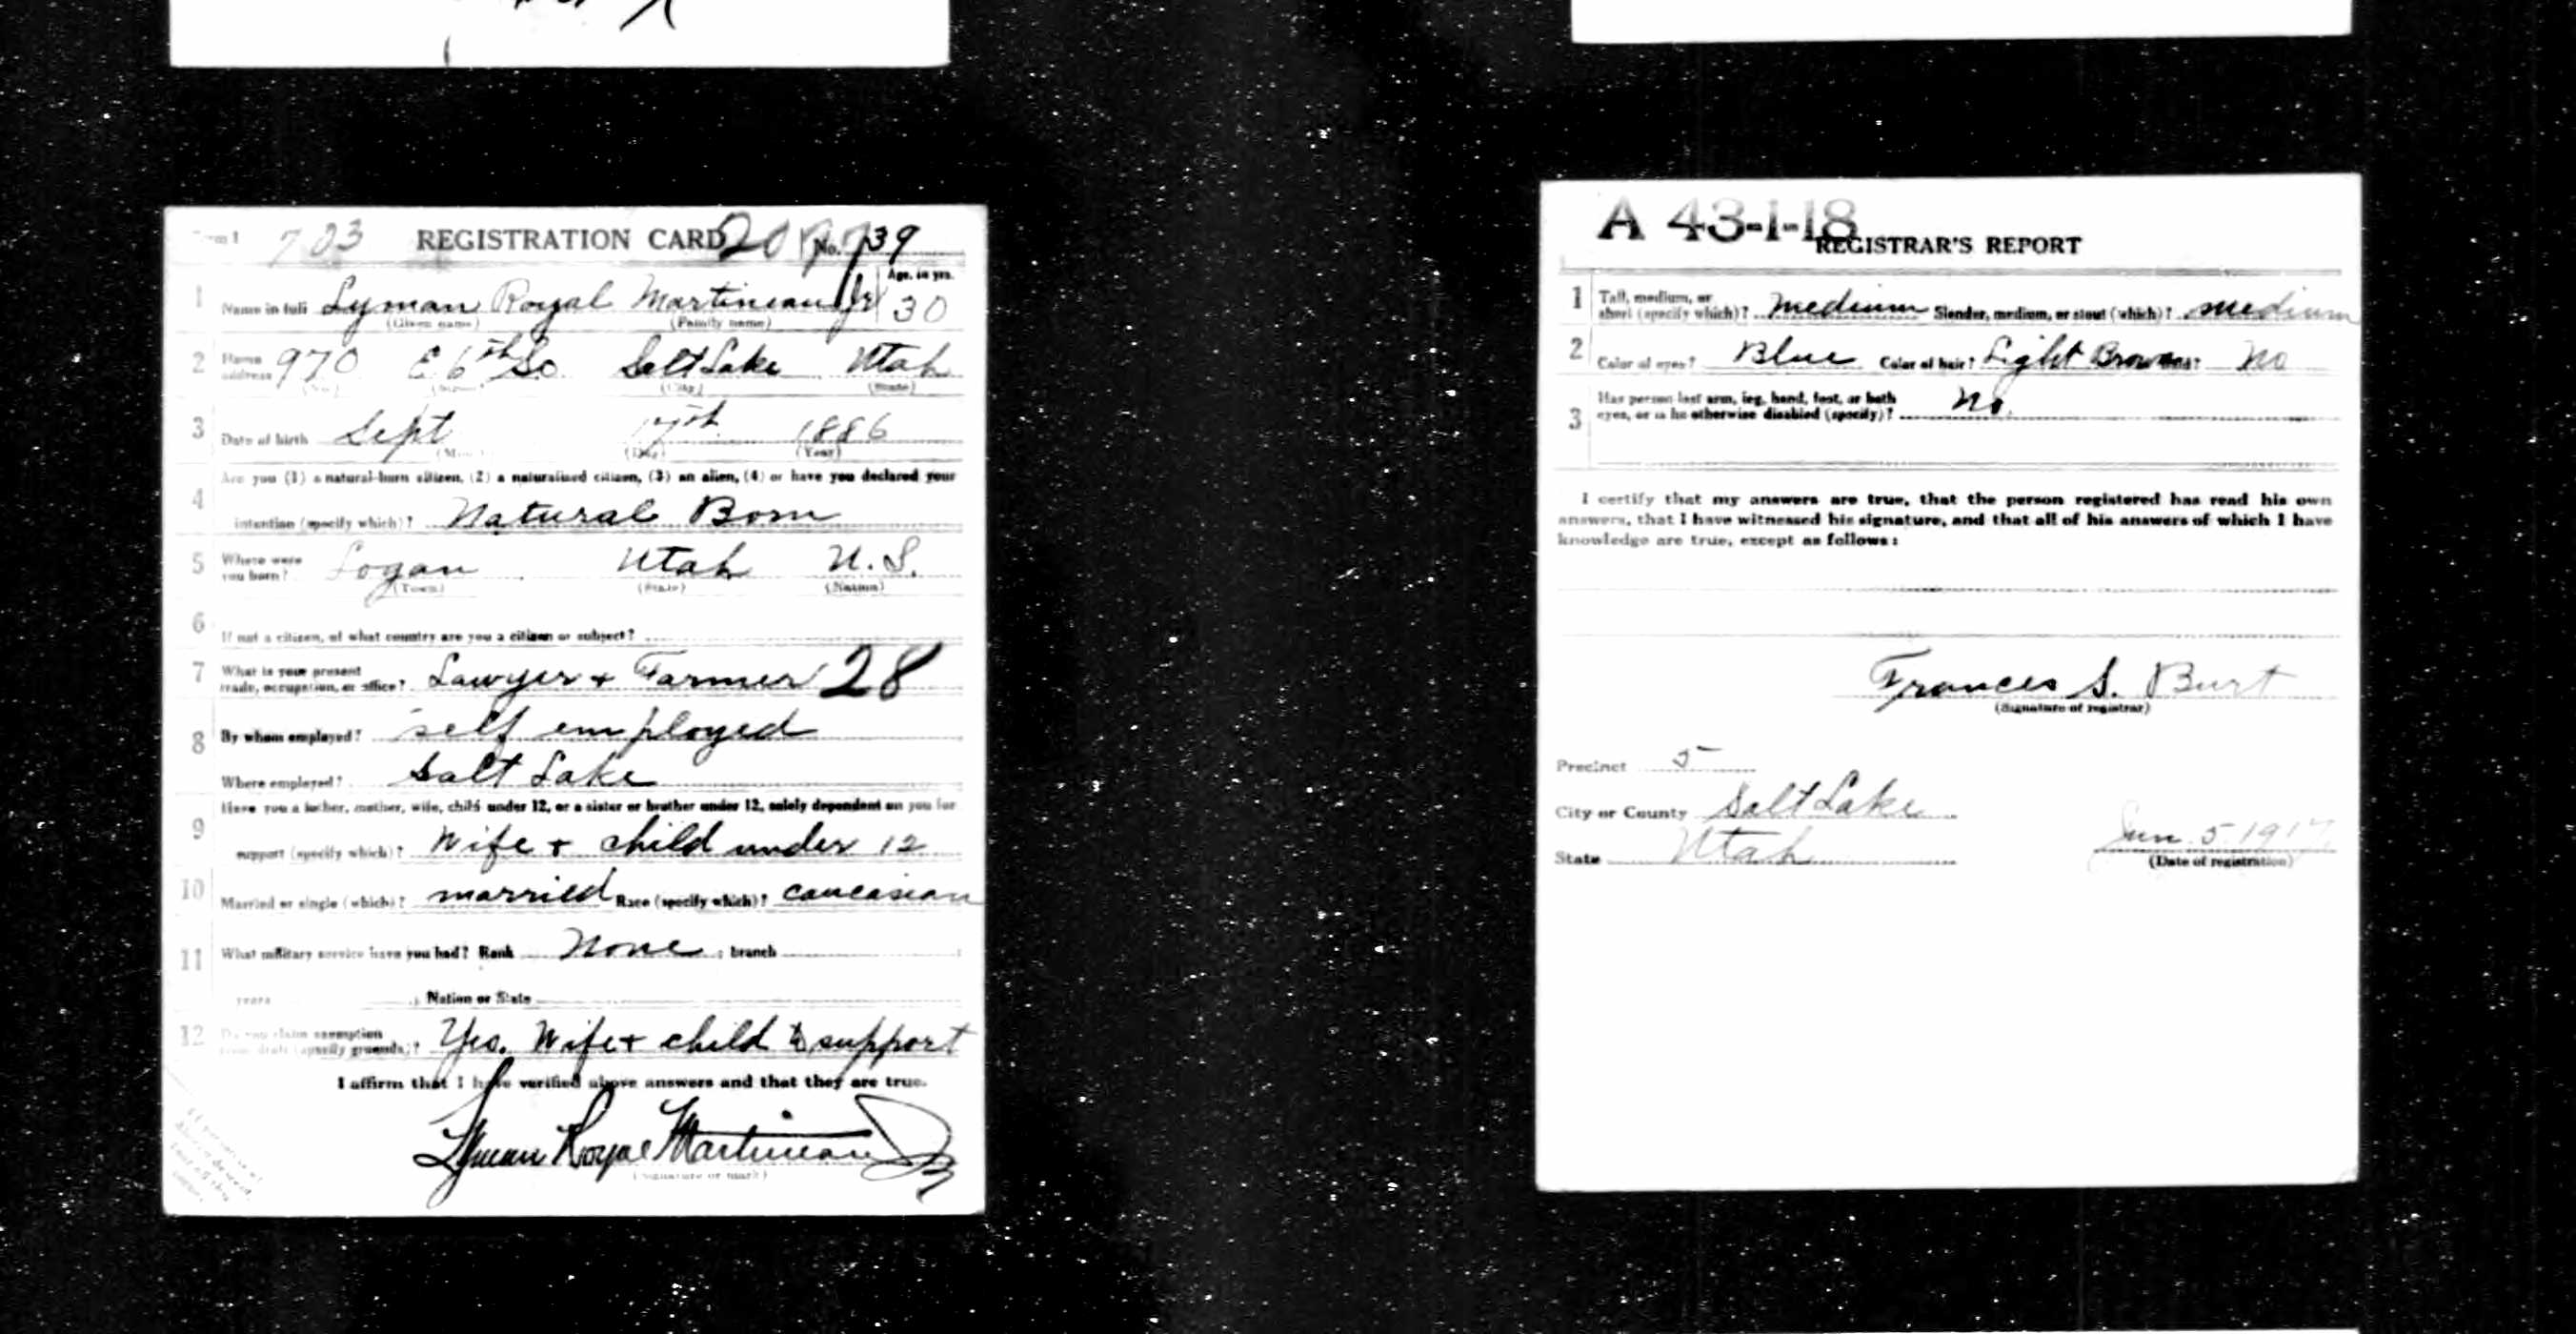 Form 1 703 REGISTRATION CARD No. 39
1 Name in full Lyman Royal Martineau Jr Age, in yrs. 30
(Given name) (Family name)
2 Home address 970 E 6th So Salt Lake Utah
(No.) (Street) (City) (State)
3 Date of birth Sept 17th 1886
(Month) (Day) (Year)
4 Are you (1) a natural-born citizen, (2) a naturalized citizen, (3) an alien, (4) or have you declared your
intention (specify which)? Natural Born
5 Where were you born? Logan Utah U.S.
(Town) (State) (Nation)
6 If not a citizen, of what country are you a citizen or subject?
7 What is your present trade, occupation, or office? Lawyer + Farmer 28
8 By whom employed? self employed
Where employed? Salt Lake
9 Have you a father, mother, wife, child under 12, or a sister or brother under 12, solely dependent on you for
support (specify which)? Wife + child under 12
10 Married or single (which)? married Race (specify which)? caucasian
11 What military service have you had? Rank None ; branch
years ; Nation or State
12 Do you claim exemption from draft (specify grounds)? Yes. Wife + child to support
I affirm that I have verified above answers and that they are true.
Lyman Royal Martineau Jr
(Signature or mark)
A 43-1-18
REGISTRAR'S REPORT
1 Tall, medium, or short (specify which)? medium Slender, medium, or stout (which)? medium
2 Color of eyes? Blue Color of hair? Light Brown Bald? No
3 Has person lost arm, leg, hand, foot, or both
eyes, or is he otherwise disabled (specify)? No.
I certify that my answers are true, that the person registered has read his own
answers, that I have witnessed his signature, and that all of his answers of which I have
knowledge are true, except as follows:
Frances S. Burt
(Signature of registrar)
Precinct 5
City or County Salt Lake
State Utah
Jun 5 1917
(Date of registration)